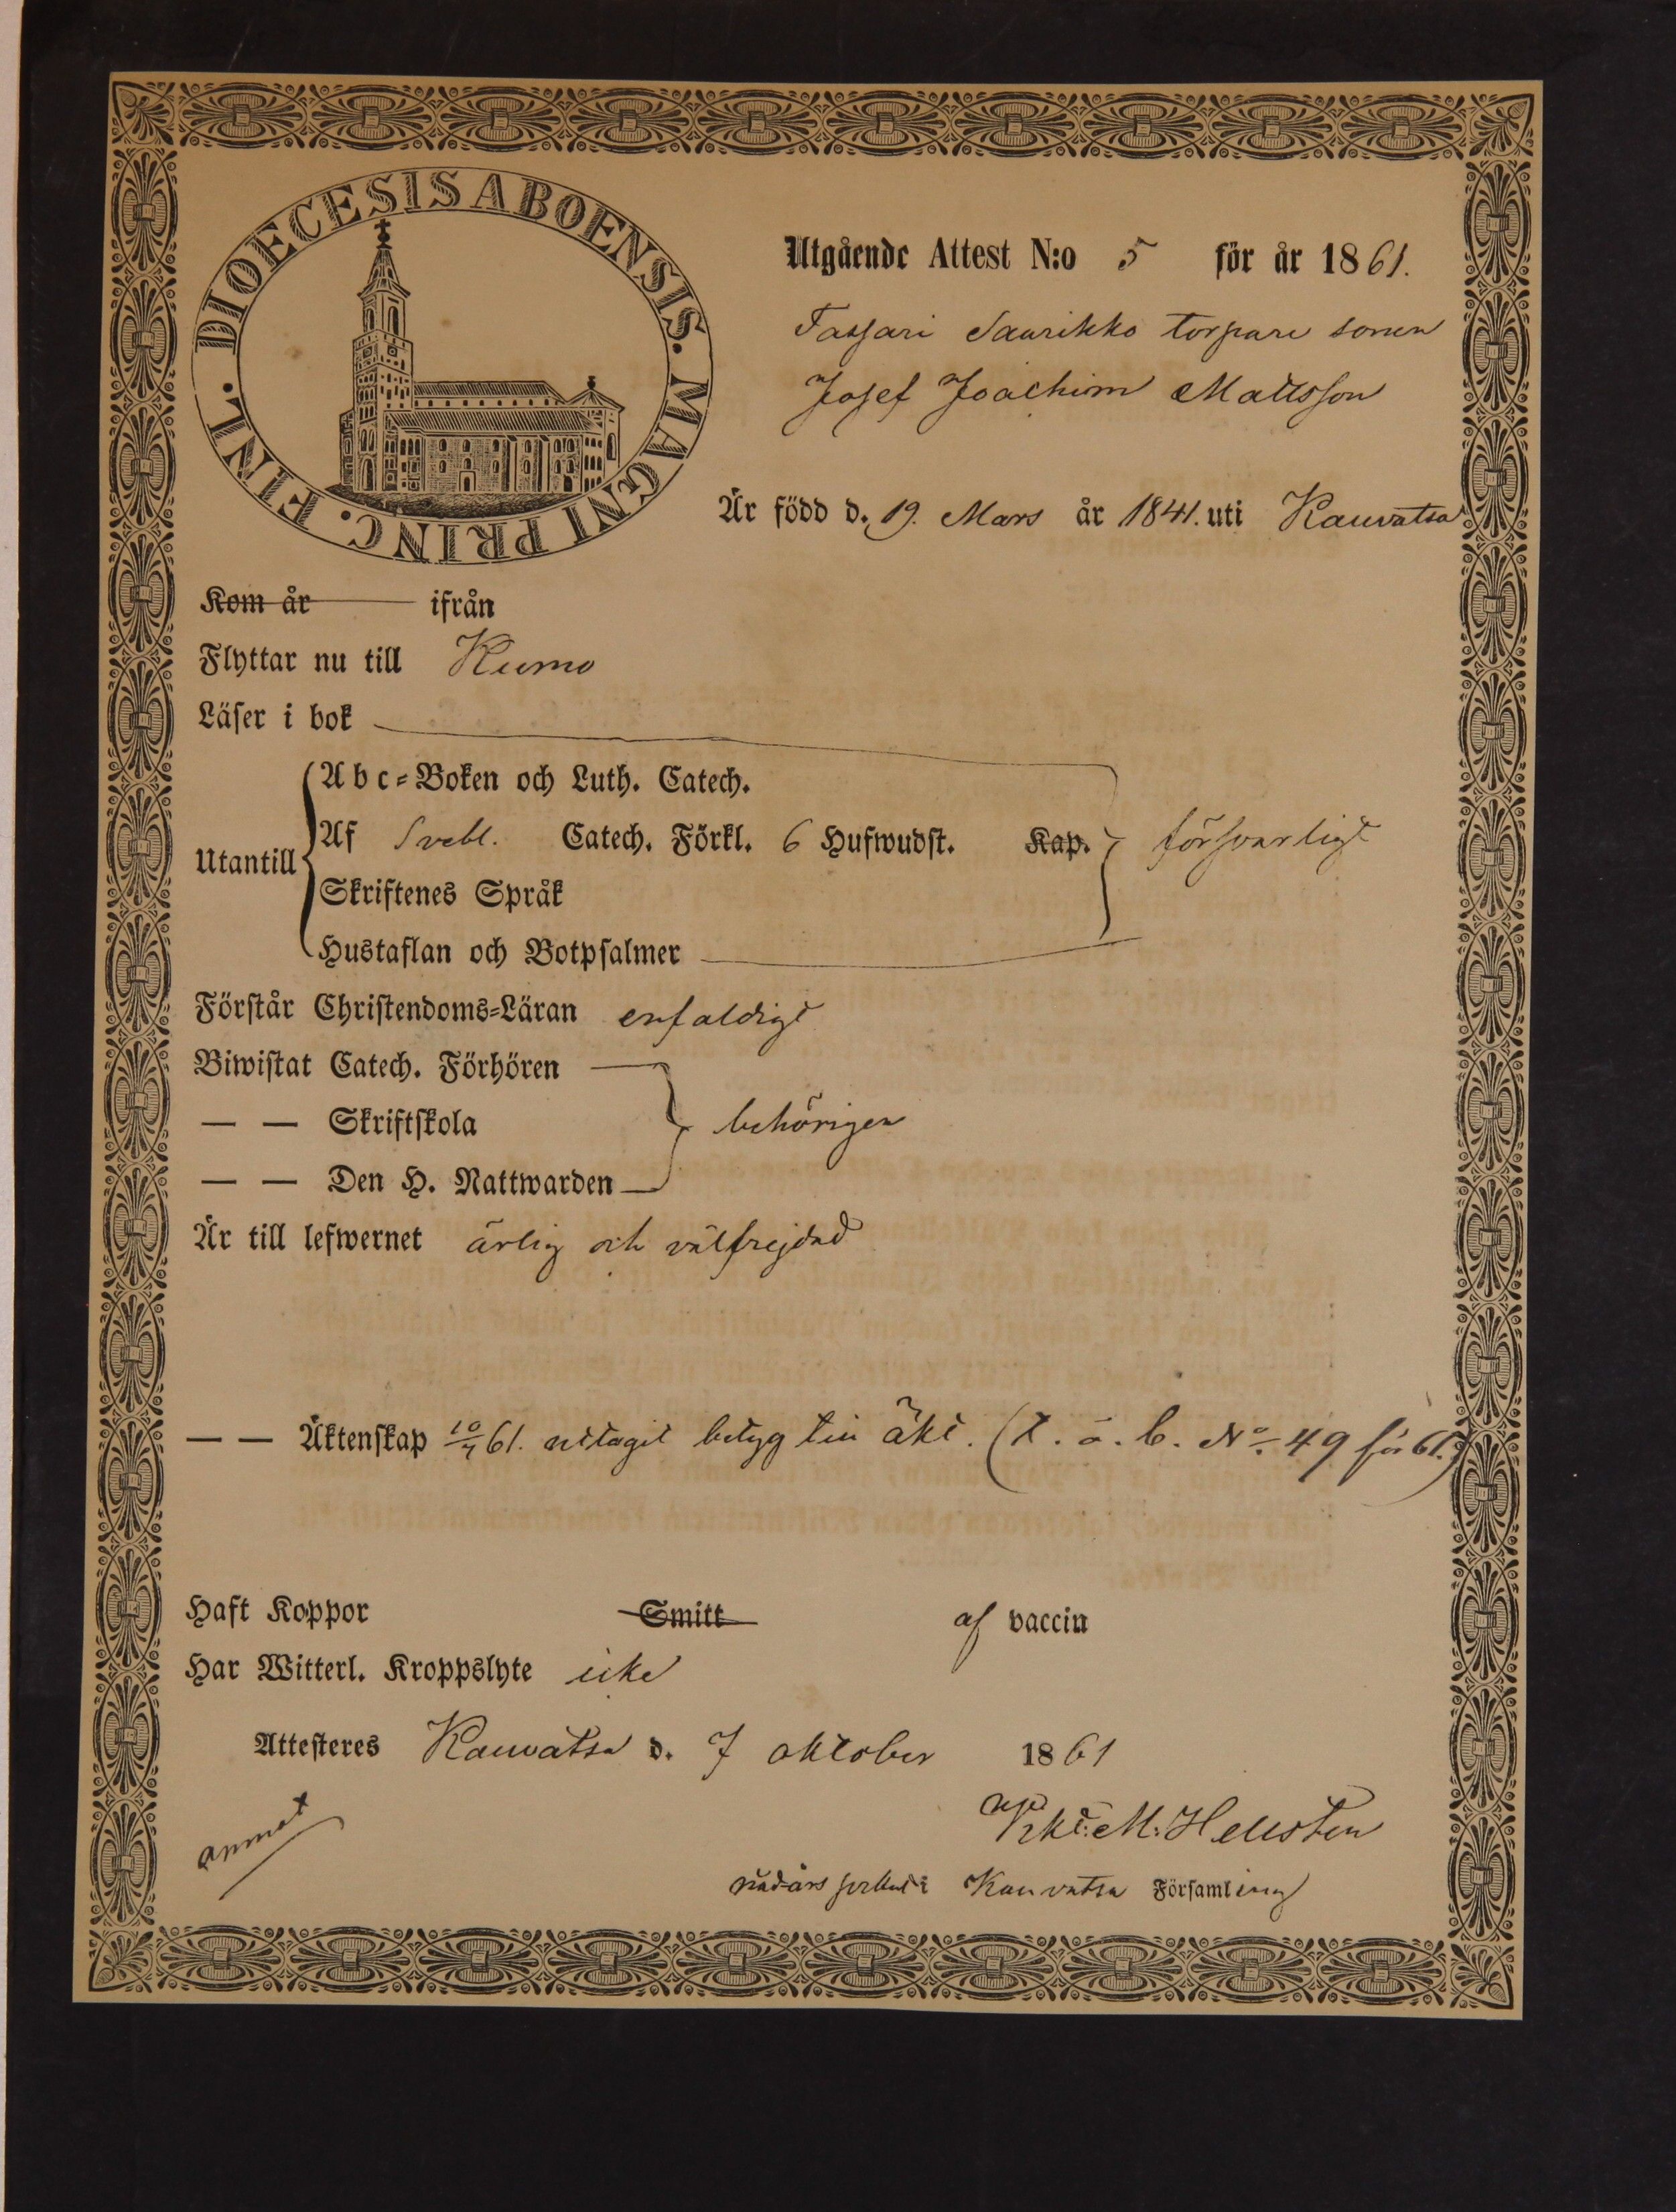 DIOECESIS ABOENSIS. MAGNI PRINC. FINL.
Utgående Attest N:o 5 för år 1861.
Saurikko torpare sonen
Josef Joachim Mattsson
Är född d. 19. Mars år 1841. uti Kauvatsa
Kom år ifrån
Flyttar nu till Kumo
Läser i bok
Abc-Boken och Luth. Catech.
Utantill Af Svebl. Catech. Förkl. 6 Hufwudst. Kap. försvarligt
Skriftenes Språk
Hustaflan och Botpsalmer
Förstår Christendoms-Läran enfaldigt
Biwistat Catech. Förhören
— — Skriftskola behörigen
— — Den H. Nattwarden
Är till lefwernet ärlig och välfrejdad
— — Äktenskap 10/7 61. uttagit betyg till äkt. (t. ä. b. No 49 för 61.)
Haft Koppor Smitt af vaccin
Har Witterl. Kroppslyte icke
Attesteres Kauvatsa d. 7 oktober 1861
M: Hellsten
nådårs i Kauvatsa Församling